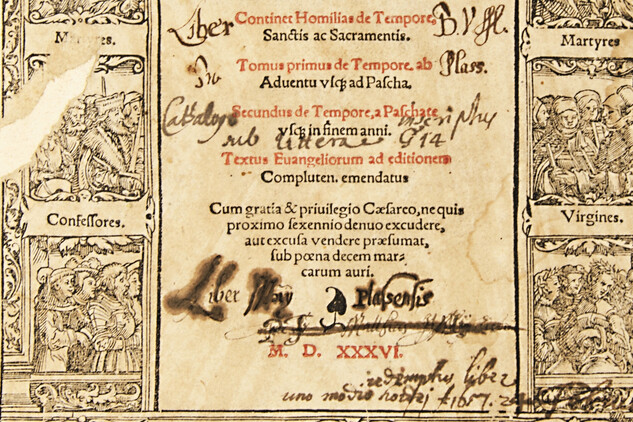 Liber
Continet Homilias de Tempore,
B. V
Martyres.
Sanctis ac Sacramentis.
Martyres
Tomus primus de Tempore. ab
Plass.
Aduentu vsq; ad Pascha.
Secundus de Tempore, a Paschate
Catalogo inscriptus
vsq; in finem anni.
sub littera G 14
Textus Euangeliorum ad editionem
Compluten. emendatus
Confessores.
Cum gratia & priuilegio Cæsareo, ne quis
Virgines.
proximo sexennio denuo excudere,
aut excusa vendere præsumat,
sub pœna decem mar-
carum auri.
Liber Plassensis
M. D. XXXVI.
redemptus liber
uno modio 1657.